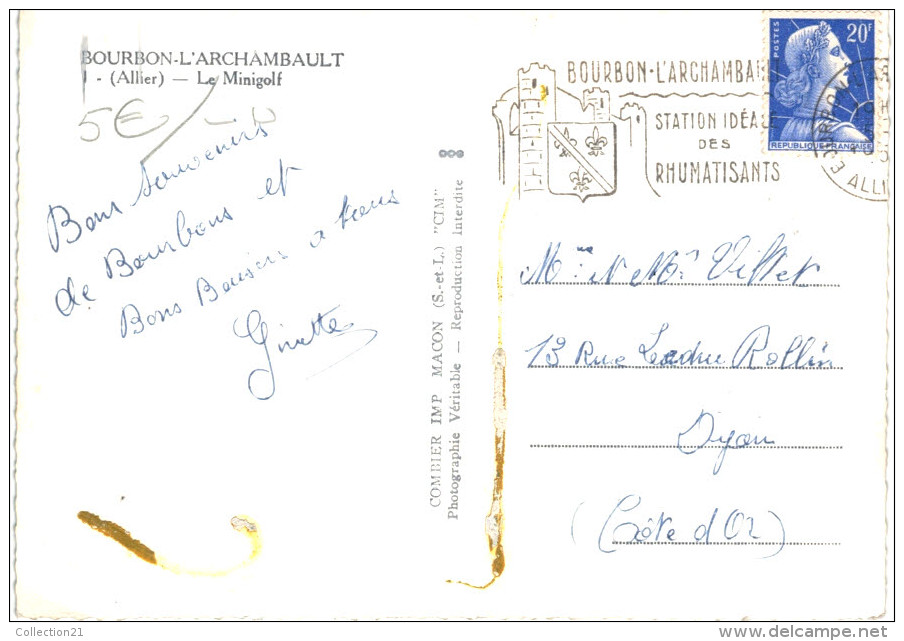 BOURBON-L'ARCHAMBAULT
1 - (Allier) — Le Minigolf
5€
Bons Souvenirs
de Bourbons et
Bons Baisers a tous
Ginette
COMBIER IMP MACON (S.-et-L.) "CIM"
Photographie Véritable — Reproduction Interdite
BOURBON-L'ARCHAMBAU
STATION IDÉALE
DES
RHUMATISANTS
POSTES
20F
REPUBLIQUE FRANÇAISE
ALLI
Mme et Mr Villet
13 Rue Ledru Rollin
Dijon
(Côte d'Or)
Collection21
delcampe.net